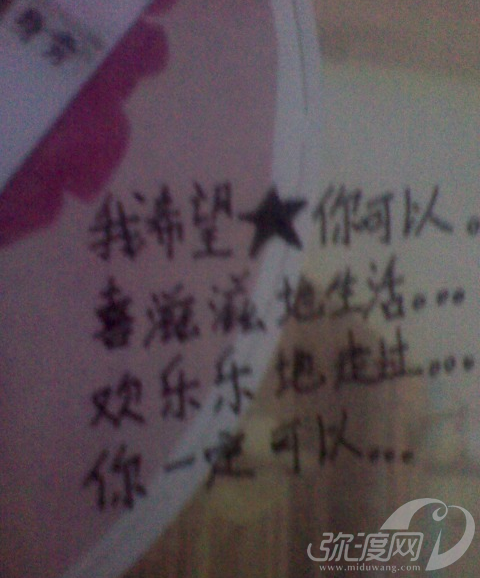 我希望★你可以.
喜滋滋地生活...
欢乐乐地走过...
你一定可以...
弥渡网
www.miduwang.com